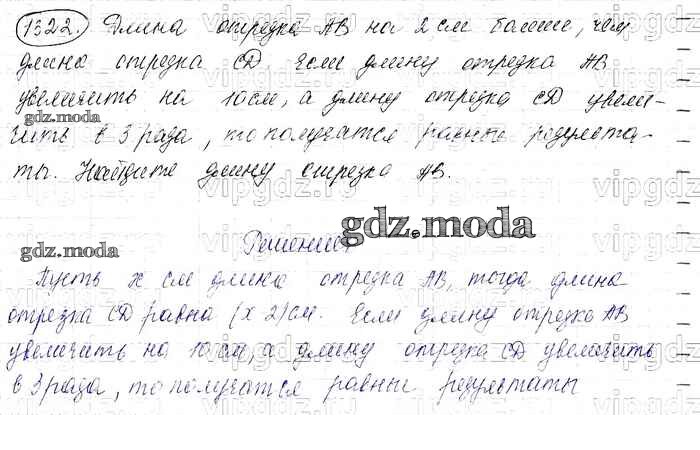 1322. Длина отрезка AB на 2 см больше, чем
длина отрезка CD. Если длину отрезка AB
увеличить на 10 см, а длину отрезка CD увели-
gdz.moda
чить в 3 раза, то получатся равные результа-
ты. Найдите длину отрезка AB.
gdz.moda
Решение:
gdz.moda
Пусть x см длина отрезка AB, тогда длина
отрезка CD равна (x 2) см. Если длину отрезка AB
увеличить на 10 см, а длину отрезка CD увеличить
в 3 раза, то получатся равные результаты